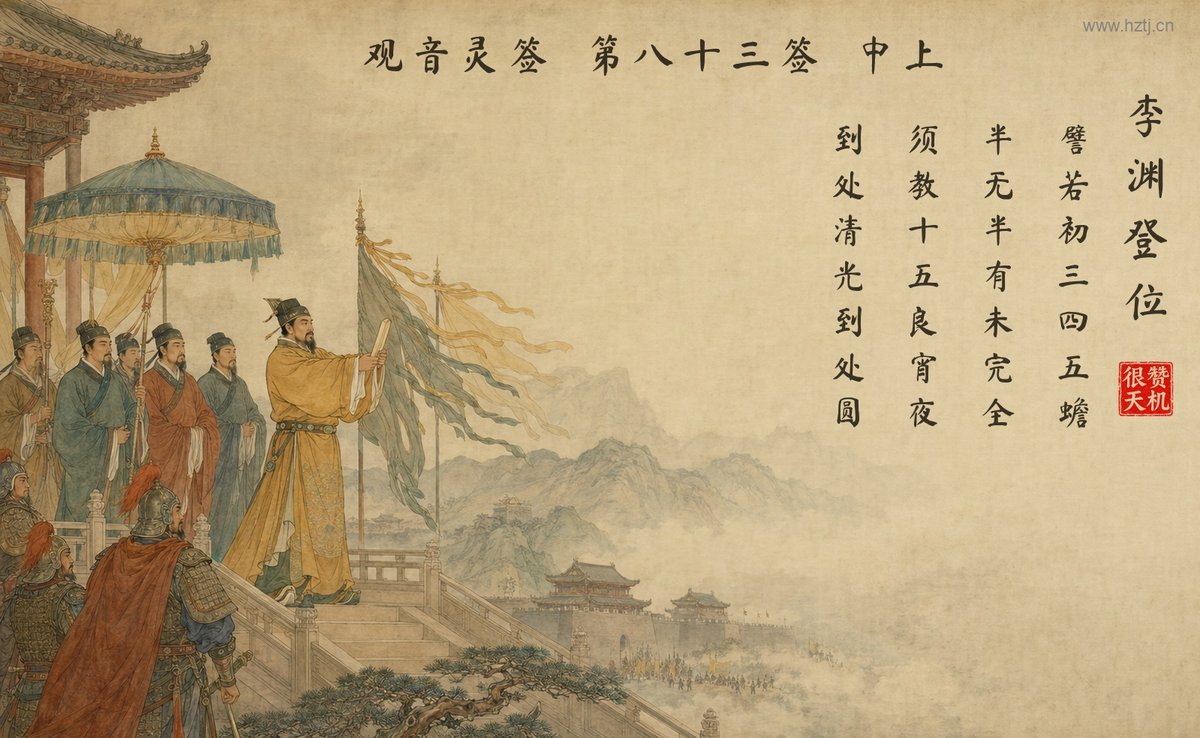 www.hztj.cn
观音灵签 第八十三签 中上
李渊登位
譬若初三四五蟾
半无半有未完全
须教十五良宵夜
到处清光到处圆
赞机
很天